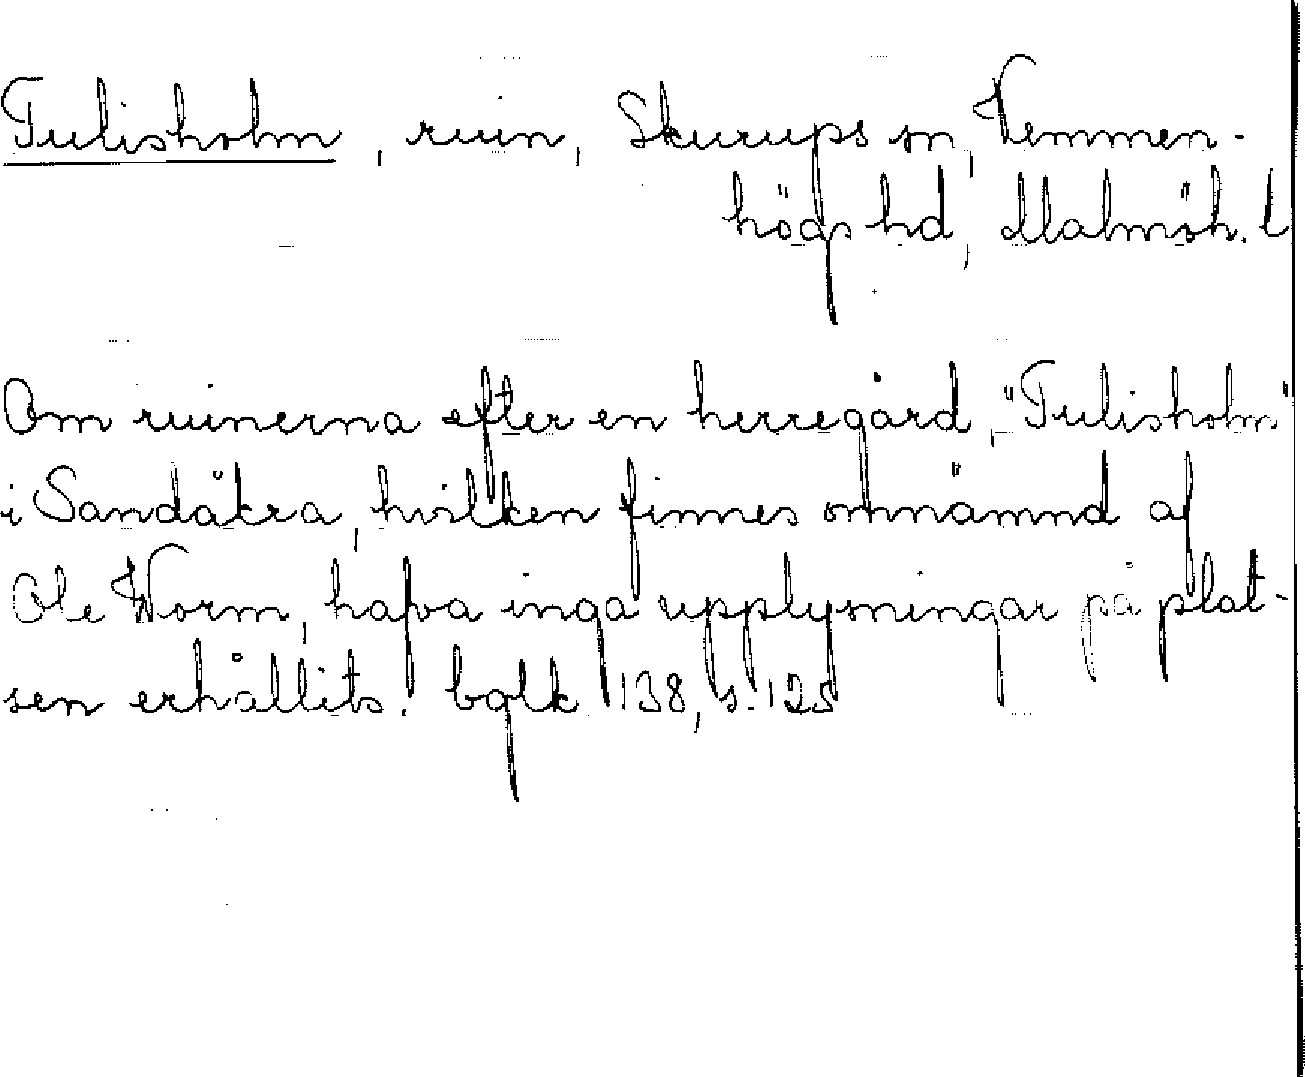 Tulisholm, ruin, Skurups sn, Vemmen-
högs hd, Malmöh. l
Om ruinerna efter en herregård, "Tulisholm"
i Sandåkra, hvilken finnes omnämnd af
Ole Worm, hafva inga upplysningar på plat-
sen erhållits. bglk 138, s. 125